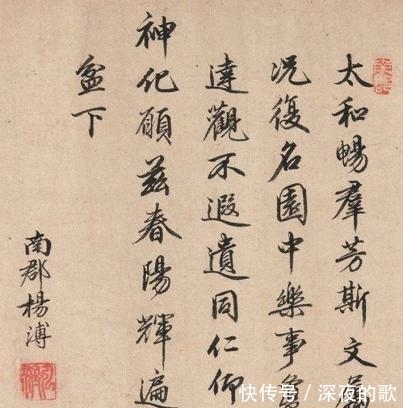 太和暢羣芳斯文
况復名園中樂事
達觀不遐遺同仁仰
神化願茲春陽輝遍
盆下
南郡楊溥
快传号/深夜的歌